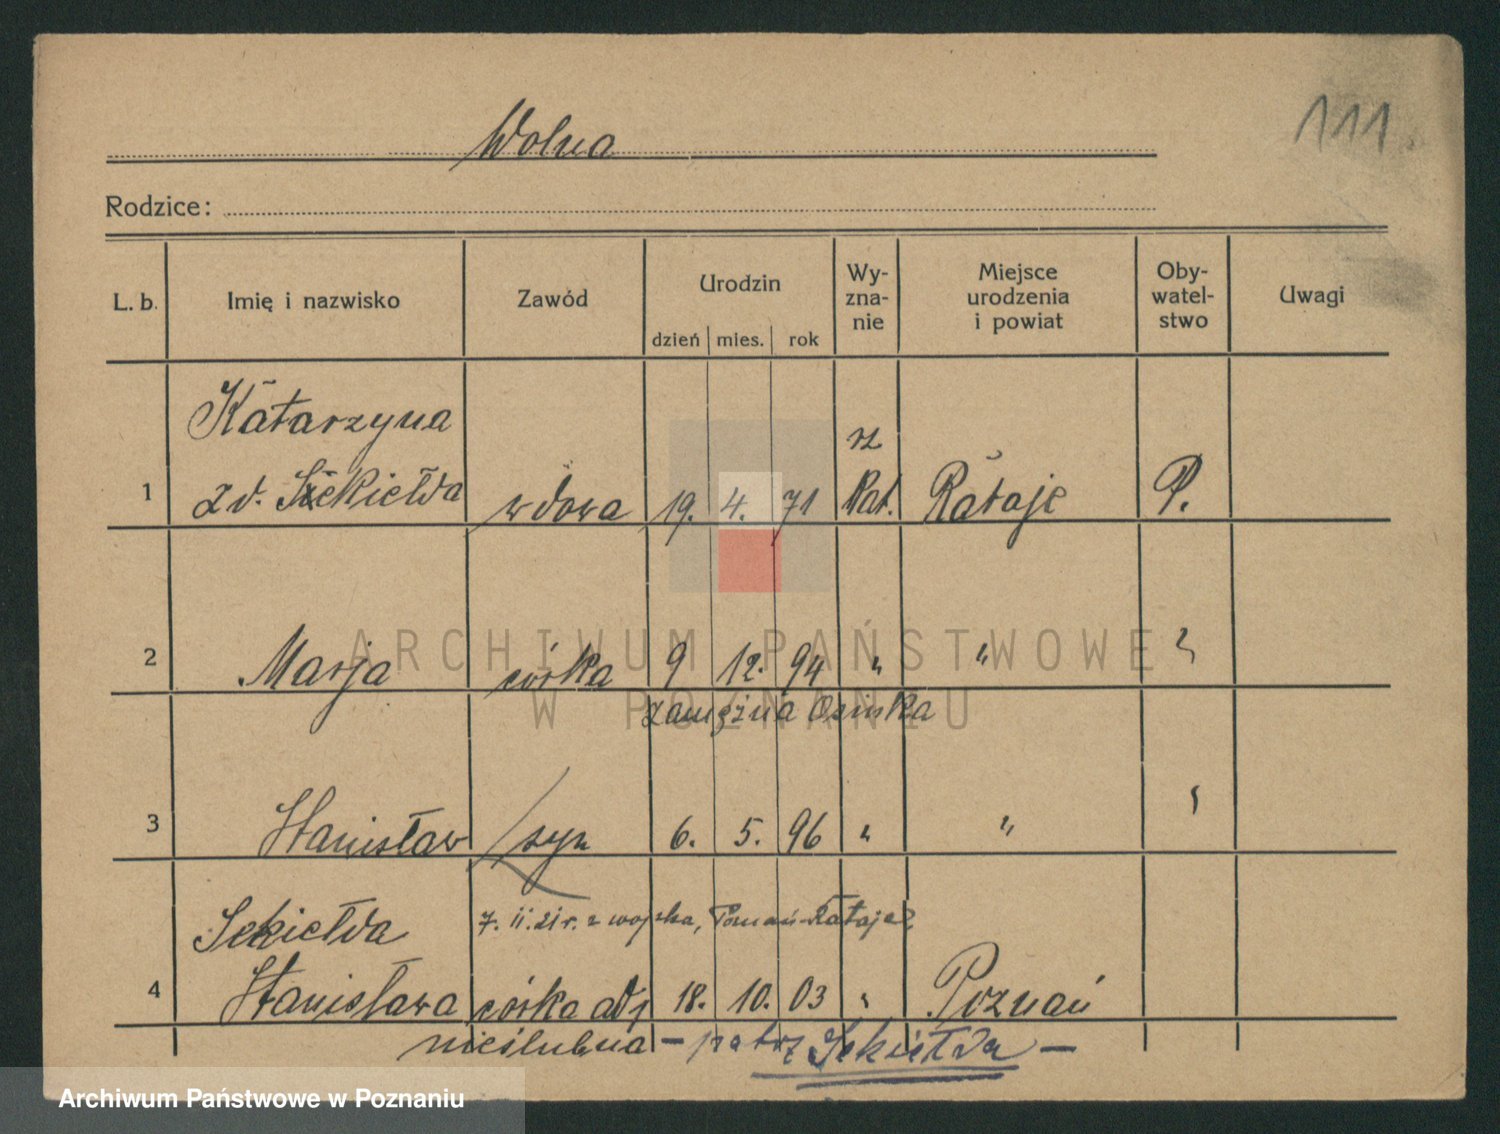 111.
Wolna
Rodzice:
L. b. Imię i nazwisko Zawód Urodzin dzień mies. rok Wy-zna-nie Miejsce urodzenia i powiat Oby-watel-stwo Uwagi
Katarzyna
1 zd. Szekiełda wdowa 19. 4. 71 rz Kat. Rataje P.
2 Marja córka 9 12. 94 " "
zamężna Osinska
3 Stanisław syn 6. 5. 96 " "
Sekiełda 7. II. 21 r. z wojska, Poznań-Rataje
4 Stanisława córka 18. 10. 03 " Poznań
nieślubna – patrz Sekiełda –
ARCHIWUM PAŃSTWOWE
W POZNANIU
Archiwum Państwowe w Poznaniu